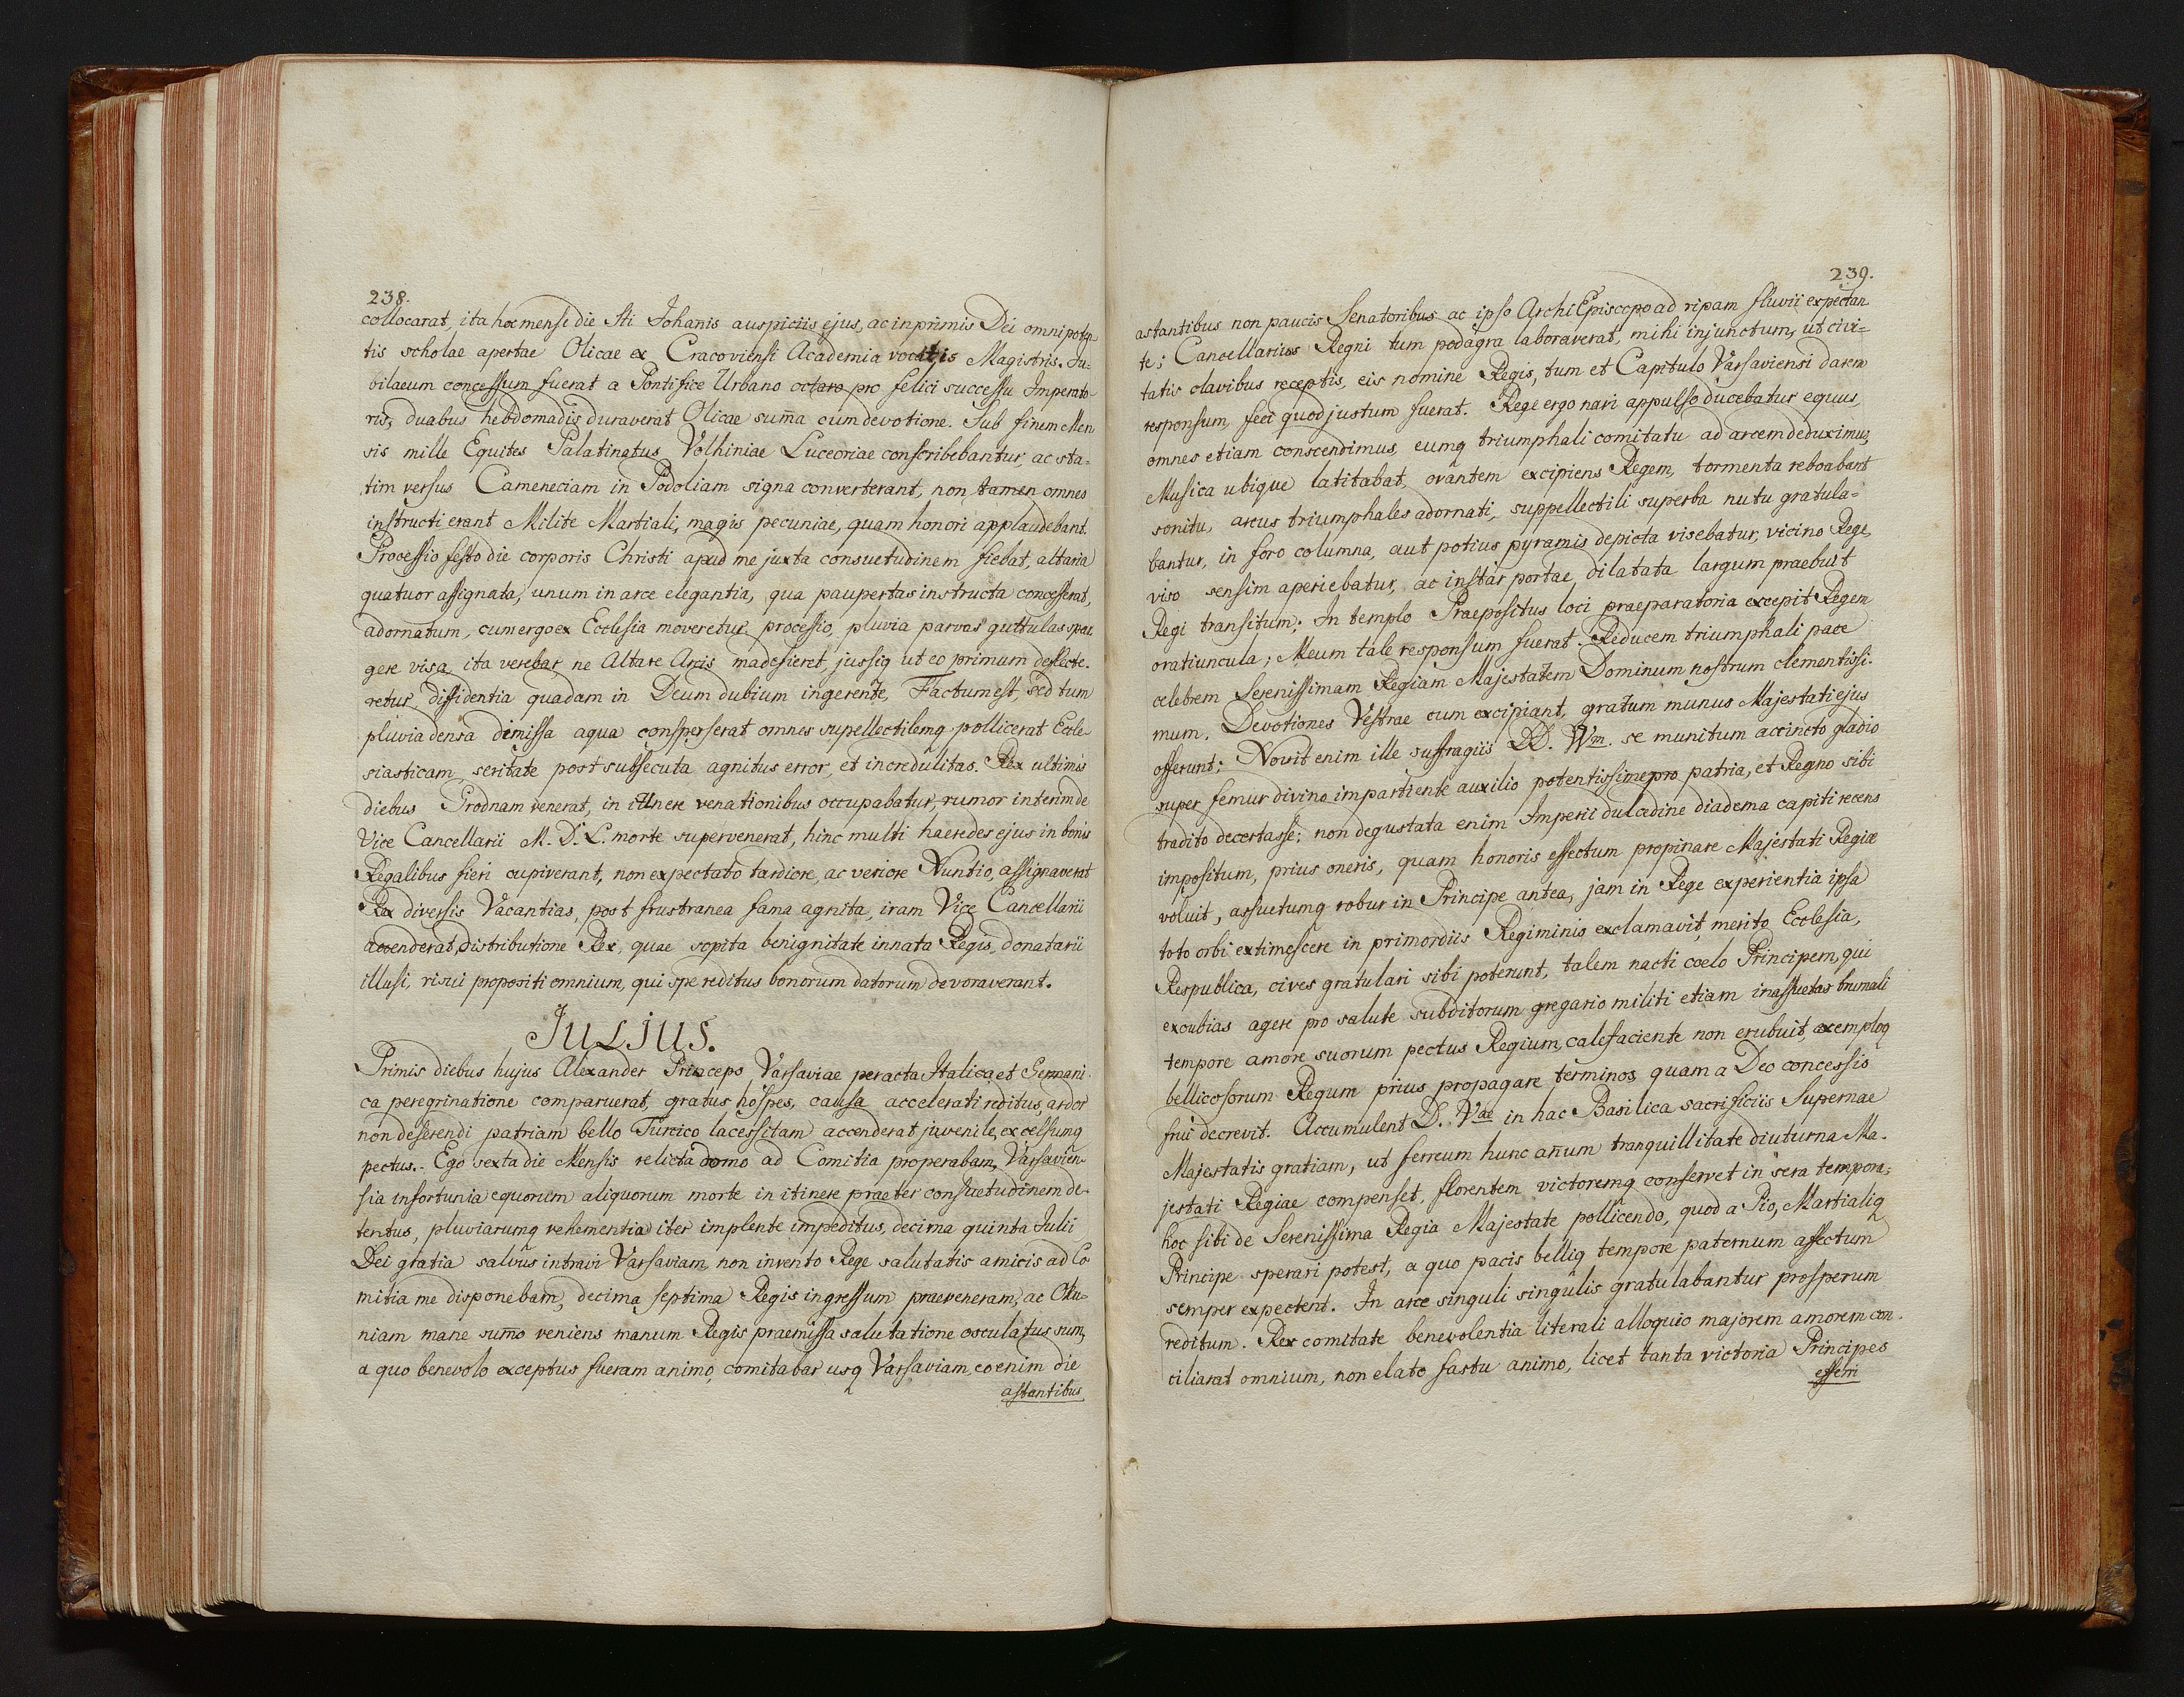 238.
collocarat, ita hoc mense die Sti Johanis auspiciis ejus, ac inprimis Dei omnipoten-
tis scholae apertae Olicae ex Cracoviensi Academia vocatis Magistris. Ju-
bilaeum concessum fuerat a Pontifice Urbano octavo pro felici successu Imperato-
ris, duabus hebdomadis duraverat Olicae suma cum devotione. Sub finem Men
sis mille Equites Palatinatus Volhiniae Luceoriae conscribebantur, ac sta-
tim versus Cameneciam in Podoliam signa converterant, non tamen omnes
instructi erant Milite Martiali, magis pecuniae, quam honori applaudebant.
Processio festo die corporis Christi apud me juxta consuetudinem fiebat, altaria
quatuor assignata, unum in arce elegantia, qua paupertas instructa concesserat,
adornatum, cum ergo ex Ecclesia moveretur processio, pluvia parvas guttulas spar
gere visa, ita verebar, ne Altare Arcis madefieret, jussiq ut eo primum deflecte-
retur, diffidentia quadam in Deum dubium ingerente, Factum est, sed tum
pluvia densa dimissa aqua consperserat omnes supellectilemq pollicerat Eccle
siasticam, seritate post subsecuta agnitus error, et incredulitas. Rex ultimis
diebus Grodnam venerat, in itinere venationibus occupabatur, rumor interim de
Vice Cancellarii M. D. L. morte supervenerat, hinc multi haeredes ejus in bonis
Regalibus fieri cupiverant, non expectato tardiore, ac veriore Nuntio, assignaverat
Rex diversis Vacantias, post frustranea fama agnita, iram Vice Cancellarii
accenderat distributione Rex, quae sopita benignitate innata Regis, donatarii
illusi, risui propositi omnium, qui spe reditus bonorum datorum devoraverant.
JULIUS.
Primis diebus hujus Alexander Princeps Varsaviae peracta Italica et Germani-
ca peregrinatione comparuerat, gratus hospes, causa accelerati reditus, ardor
non deserendi patriam bello Turcico lacessitam accenderat juvenile, excelsumq
pectus. Ego sexta die Mensis relicta domo ad Comitia properabam, Varsavien-
sia infortunia equorum aliquorum morte in itinere praeter consuetudinem de-
tentus, pluviarumq vehementia iter implente impeditus, decima quinta Julii
Dei gratia salvus intravi Varsaviam, non invento Rege salutatis amicis ad Co
mitia me disponebam, decima septima Regis ingressum praeveneram, ac Oku-
niam mane sumo veniens manum Regis praemissa salutatione osculatus sum,
a quo benevolo exceptus fueram animo, comitabar usq Varsaviam, eo enim die
astantibus
239.
astantibus non paucis Senatoribus ac ipso Archi Episcopo ad ripam fluvii expectan
te; Cancellarius Regni tum podagra laboraverat, mihi injunctum, ut civi-
tatis clavibus receptis, eis nomine Regis, tum et Capitulo Varsaviensi darem
responsum, feci quod justum fuerat. Rege ergo navi appulso ducebatur equus,
omnes etiam conscendimus, eumq triumphali comitatu ad arcem deduximus,
Musica ubique latitabat, ovantem excipiens Regem, tormenta reboabant
sonitu, arcus triumphales adornati, suppellectili superba nutu gratula-
bantur, in foro columna, aut potius pyramis depicta visebatur, vicino Rege
viso sensim aperiebatur, ac instar portae dilatata largum praebuit
Regi transitum; In templo Praepositus loci praeparatoria excepit Regem
oratiuncula; Meum tale responsum fuerat. Reducem triumphali pace
celebrem Serenissimam Regiam Majestatem Dominum nostrum clementissi-
mum. Devotiones Vestrae cum excipiant, gratum munus Majestati ejus
offerunt: Novit enim ille suffragiis DD. Vm. se munitum accincto gladio
super femur divino impartiente auxilio potentissime pro patria, et Regno sibi
tradito decertasse: non degustata enim Imperii dulcedine diadema capiti recens
impositum, prius oneris, quam honoris effectum propinare Majestati Regiae
voluit, assuetumq robur in Principe antea, jam in Rege experientia ipsa
toto orbi extimescere in primordiis Regiminis exclamavit, merito Ecclesia,
Respublica, cives gratulari sibi poterunt, talem nacti coelo Principem, qui
excubias agere pro salute subditorum gregario militi etiam inassuetas brumali
tempore amore suorum pectus Regium calefaciente non erubuit, exemploq
bellicosorum Regum prius propagare terminos, quam a Deo concessis
frui decrevit. Accumulent D. Vae in hac Basilica sacrificiis Supernae
Majestatis gratiam, ut ferreum hunc anum tranquillitate diuturna Ma-
jestati Regiae compenset, florentem victoremq conservet in sera tempora;
hoc sibi de Serenissima Regia Majestate pollicendo, quod a Pio, Martialiq
Principe sperari potest, a quo pacis belliq tempore paternum affectum
semper expectent. In arce singuli singulis gratulabantur prosperum
reditum. Rex comitate benevolentia literali alloquio majorem amorem con-
ciliarat omnium, non elato fastu animo, licet tanta victoria Principes
efferri